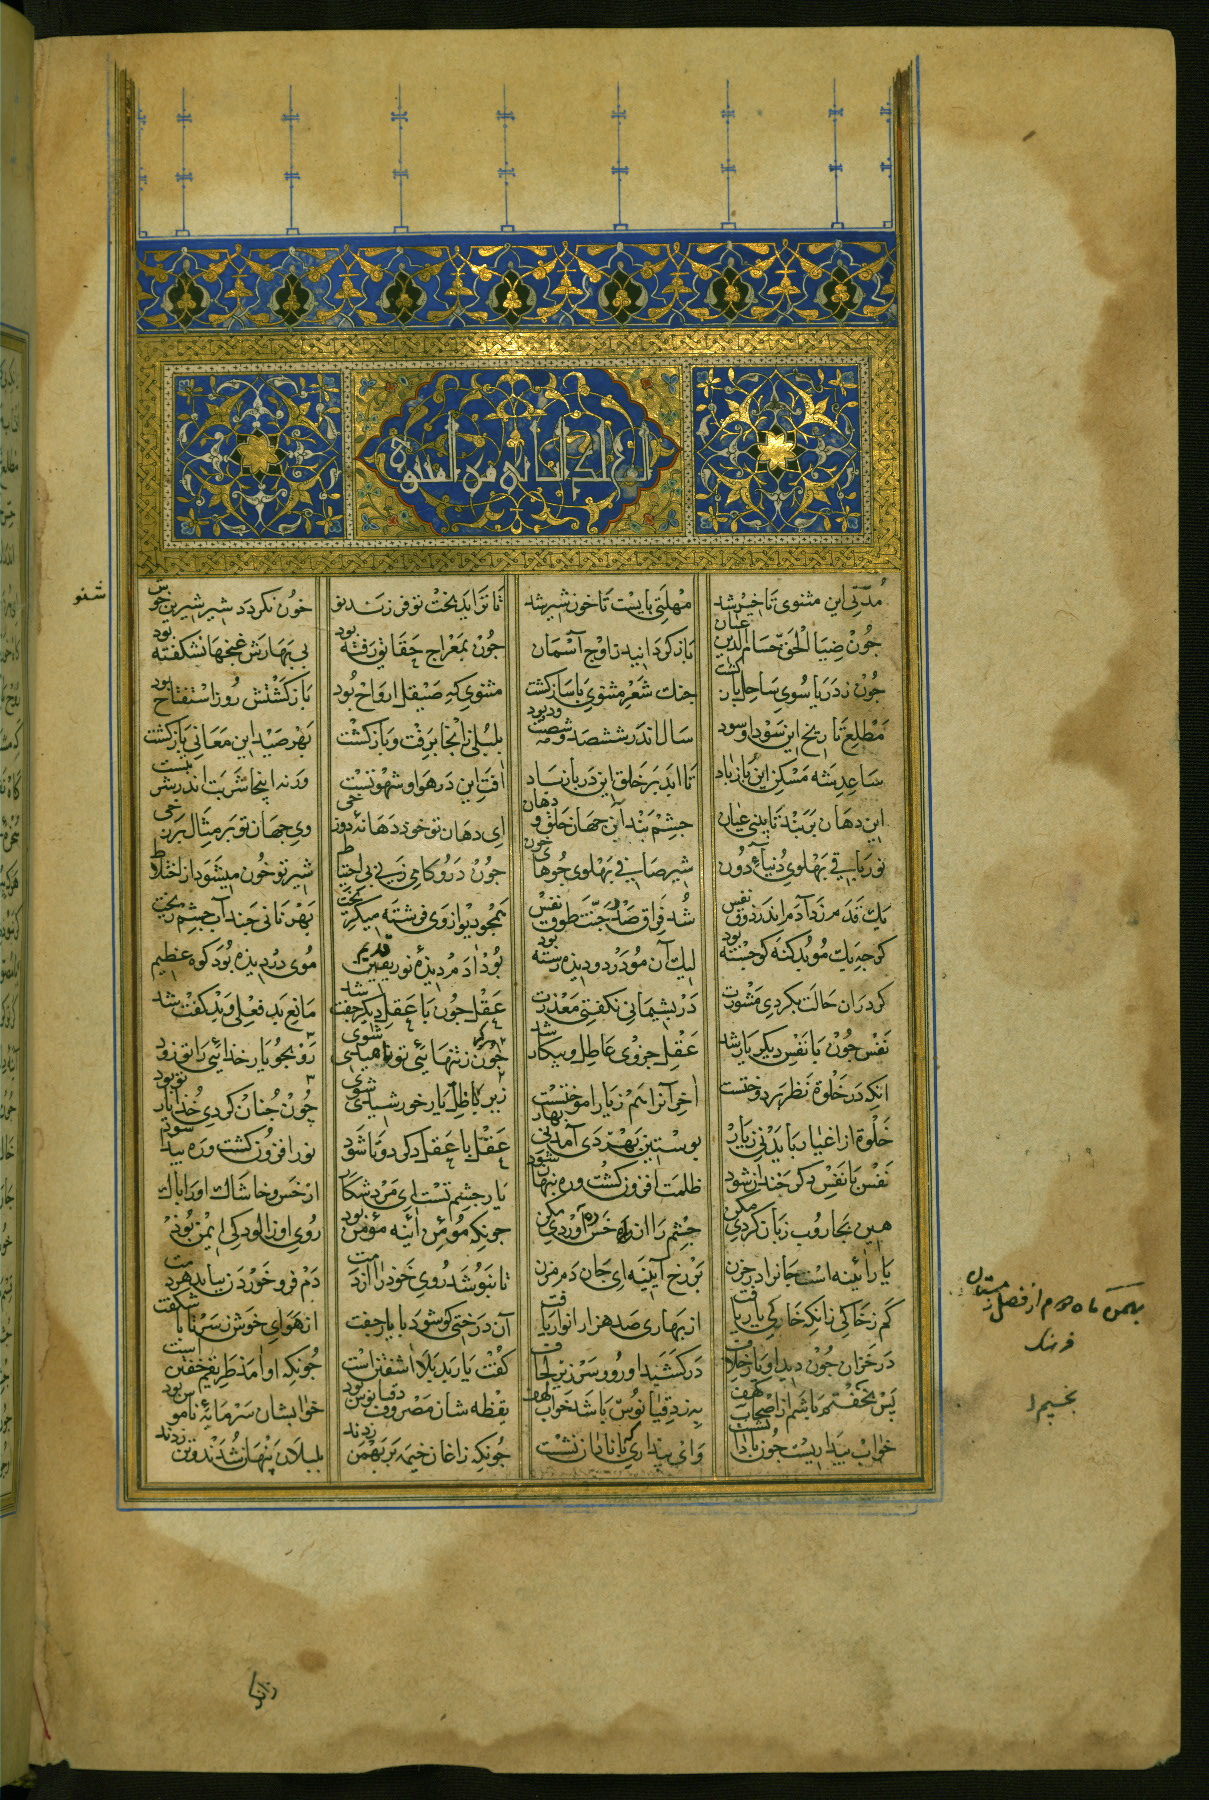 المجلد الثانی من المثنوی
مدتی این مثنوی تاخیر شد مهلتی بایست تا خون شیر شد تا نزاید بخت تو فرزند نو خون نکردد شیر شیرین خوش شنو
جون ضیا الحق حسام الدین عنان باز کردانید ز اوج آسمان جون بمعراج حقایق رفته بود بی بهارش غنجها نشکفته بود
جون ز دریا سوی ساحل باز کشت جنك شعر مثنوی با ساز کشت مثنوی که صیقل ارواح بود باز کشتش روز استفتاح بود
مطلع تاریخ این سودا و سود سال اندر ششصد و شصت و دو بود بلبلی زانجا برفت و باز کشت بهر صید این معانی باز کشت
ساعد شه مسکن این باز باد تا ابد بر خلق این در باز باد افت این در هوا و شهوتست ورنه اینجا شربت اندر شربتست
این دهان بربند تا بینی عیان جشم بند آن جهان حلق و دهان ای دهان تو خود دهانهٔ دوزخی وی جهان تو بر مثال برزخی
نور باقی بهلوی دنیای دون شیر صافی بهلوی جوهای خون جون درو کامی زنی بی احتیاط شیر تو خون میشود از اختلاط
یك قدم زد آدم اندر ذوق نفس شد فراق صدر جنت طوق نفس همجو دیو از وی فرشته میکریخت بهر نانی جند آب جشم ریخت
کرجه یك موبد کنه کو جسته بود لیك آن مو در دو دیده رسته بود بود ادم دیدهٔ نور قدیم موی در دیده بود کوه عظیم
کر دران حالت بکردی مشورت در بشیمانی نکفتی معذرت عقل جون با عقل دیکر جفت شد مانع بد فعلی و بد کفت شد
نفس جون با نفس دیکر یار شد عقل جزوی عاطل و بیکار شد جون ز تنهایئی تو ناهیدی شوی رو بجو یار خدایئی را تو زود
انکه در خلوة نظر بردوختست اخر آنرا هم ز یار اموختست زیر یا ظل یار خورشیدی شوی جون جنان کردی خدا یار تو بود
خلوة از اغیار باید نی ز یار بوستین بهر دی آمد نی بهار عقل با عقل دکر دوتا شود نور افزون کشت و ره بیدا شود
نفس با نفس دکر خندان شود ظلمت افزون کشت و ره بنهان شود یار جشم تست ای مرد شکار از خس و خاشاك اورا باك دار
هین بجاروب زبان کردی مکن جشم را از خس ره آوردی مکن جونکه مؤمن آینه مؤمن بود روی او ز الودکی ایمن بود
یار آئینه است جانرا در حزن بر رخ آیینه ای جان دم مزن تا نبوشد روی خود را از دمت دم فرو خوردن بباید هر دمت
کم ز خاکی نانکه خاکی یار یافت از بهاری صد هزار انوار یافت آن درختی کو شود با یار جفت از هوای خوش ز سر تا با شکفت
در خزان جون دید او یار خلاف در کشید او رو و سر زیر لحاف کفت یار بد بلا آشفتن است جونکه او امد طریقم خفتن است
بس بخفتم باشم از اصحاب کهف به ز دقیانوس باشد خواب کهف یقظه شان مصروف دقیانوس بود خوابشان سرمایهٔ ناموس بود
خواب بیداریست جون با دانشست وای بیداری که با نادان نشست جونکه زاغان خیمه بر بهمن زدند بلبلان بنهان شدند و تن زدند
بهمن ماه دوم از فصل زمستان
فرهنك
بخسپم
زانرا